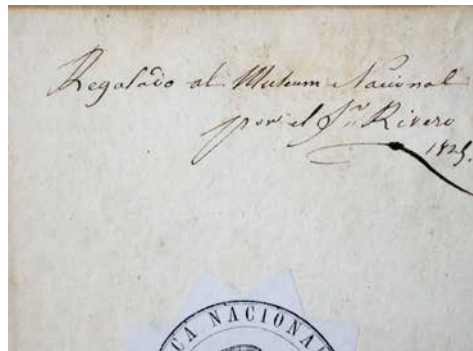 Regalado al Museum Nacional
por el Sr. Rivero
1825.
CA NACIONA